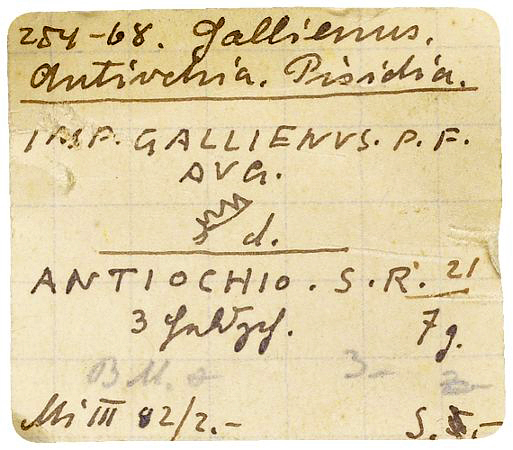 254-68. Gallienus.
Antiochia. Pisidia.
IMP. GALLIENVS. P. F.
AVG.
d.
ANTIOCHIO. S. R. 21
3 7 g.
B M. 3-
Mi III 82/2.- S. 5.-